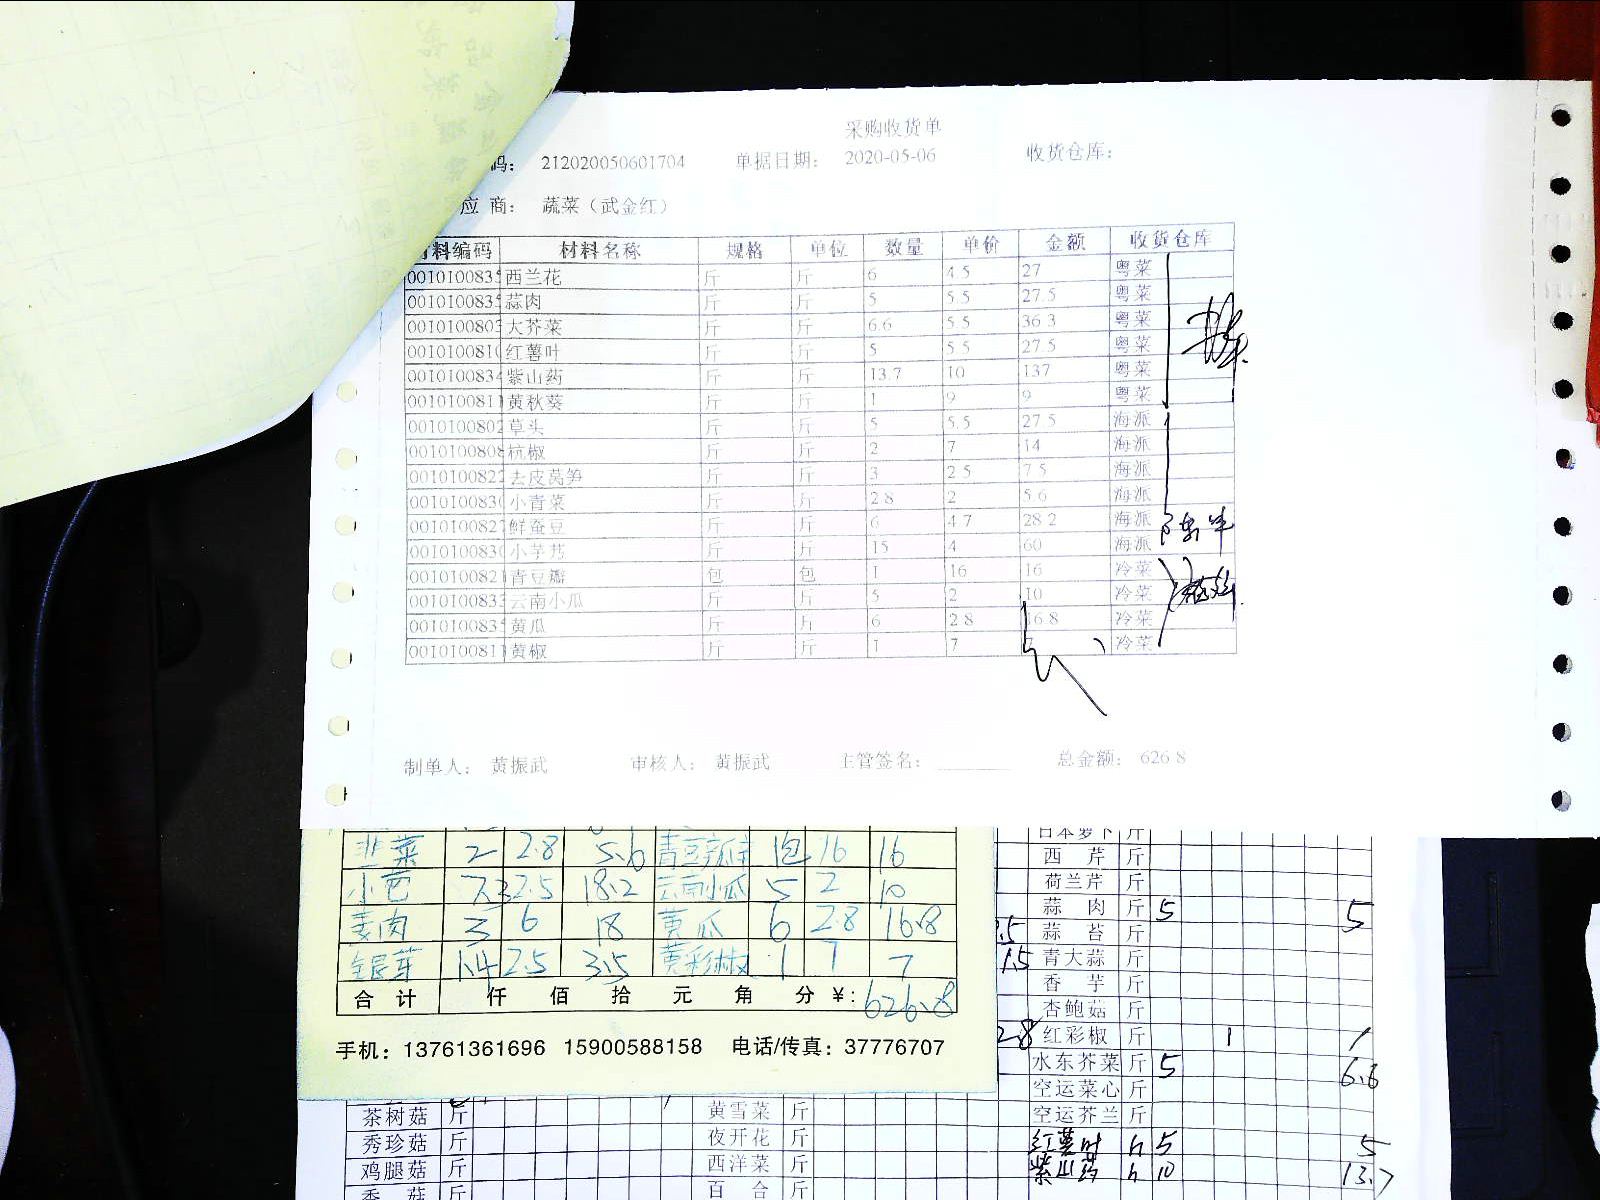 采购收货单
码： 212020050601704 单据日期： 2020-05-06 收货仓库：
应 商： 蔬菜（武金红）
材料编码 材料名称 规格 单位 数量 单价 金额 收货仓库
0010100835 西兰花 斤 斤 6 4.5 27 粤菜
0010100835 蒜肉 斤 斤 5 5.5 27.5 粤菜
0010100803 大芥菜 斤 斤 6.6 5.5 36.3 粤菜
001010081 红薯叶 斤 斤 5 5.5 27.5 粤菜
0010100834 紫山药 斤 斤 13.7 10 137 粤菜
0010100811 黄秋葵 斤 斤 1 9 9 粤菜
0010100802 草头 斤 斤 5 5.5 27.5 海派
0010100808 杭椒 斤 斤 2 7 14 海派
0010100822 去皮莴笋 斤 斤 3 2.5 7.5 海派
001010083 小青菜 斤 斤 2.8 2 5.6 海派
0010100827 鲜蚕豆 斤 斤 6 4.7 28.2 海派
001010083 小芋艿 斤 斤 15 4 60 海派
0010100821 青豆瓣 包 包 1 16 16 冷菜
0010100833 云南小瓜 斤 斤 5 2 10 冷菜
0010100835 黄瓜 斤 斤 6 2.8 16.8 冷菜
0010100811 黄椒 斤 斤 1 7 7 冷菜
制单人： 黄振武 审核人： 黄振武 主管签名： 总金额： 626.8
韭菜 2 2.8 5.6 青豆瓣 1包 16 16
小芒 7.3 2.5 18.2 云南小瓜 5 2 10
姜肉 3 6 18 黄瓜 6 2.8 16.8
银芽 1.4 2.5 3.5 黄彩椒 1 7 7
合 计 仟 佰 拾 元 角 分 ¥: 626.8
手机：13761361696 15900588158 电话/传真：37776707
日本萝卜 斤
西 芹 斤
荷兰芹 斤
蒜 肉 斤 5 5
蒜 苔 斤
1.5 青大蒜 斤
香 芋 斤
杏鲍菇 斤
2.8 红彩椒 斤 1 1
水东芥菜 斤 5 6.6
空运菜心 斤
茶树菇 斤 黄雪菜 斤 空运芥兰 斤
秀珍菇 斤 夜开花 斤 红薯叶 5 5
鸡腿菇 斤 西洋菜 斤 紫山药 10 13.7
香 菇 斤 百 合 斤